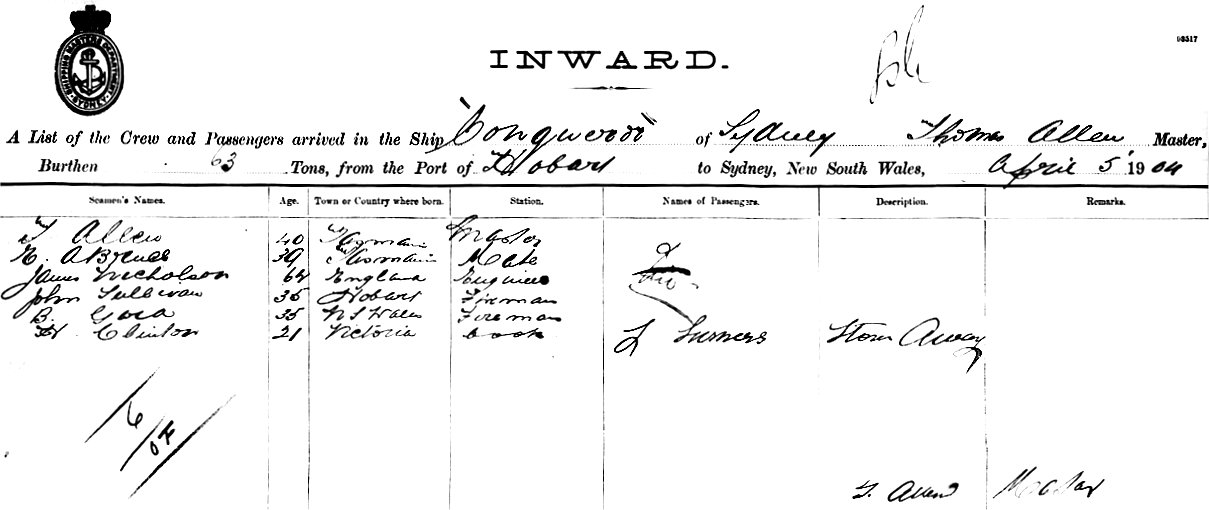 SHIPPING MASTERS DEPARTMENT SYDNEY
68517
INWARD.
A List of the Crew and Passengers arrived in the Ship "Longwood" of Sydney Thomas Allen, Master,
Burthen 63 Tons, from the Port of Hobart to Sydney, New South Wales, April 5 1904
Seamen's Names. Age. Town or Country where born. Station. Names of Passengers. Description. Remarks.
T Allen 40 Tasmani Master
39 Tasmani Mate
James Nicholson England Engineer
John Sullivan 35 Hobart Fireman
B. 35 N S Wales Fireman
H Clinton 21 Victoria Cook Sumers Stow Away
T. Allen Master